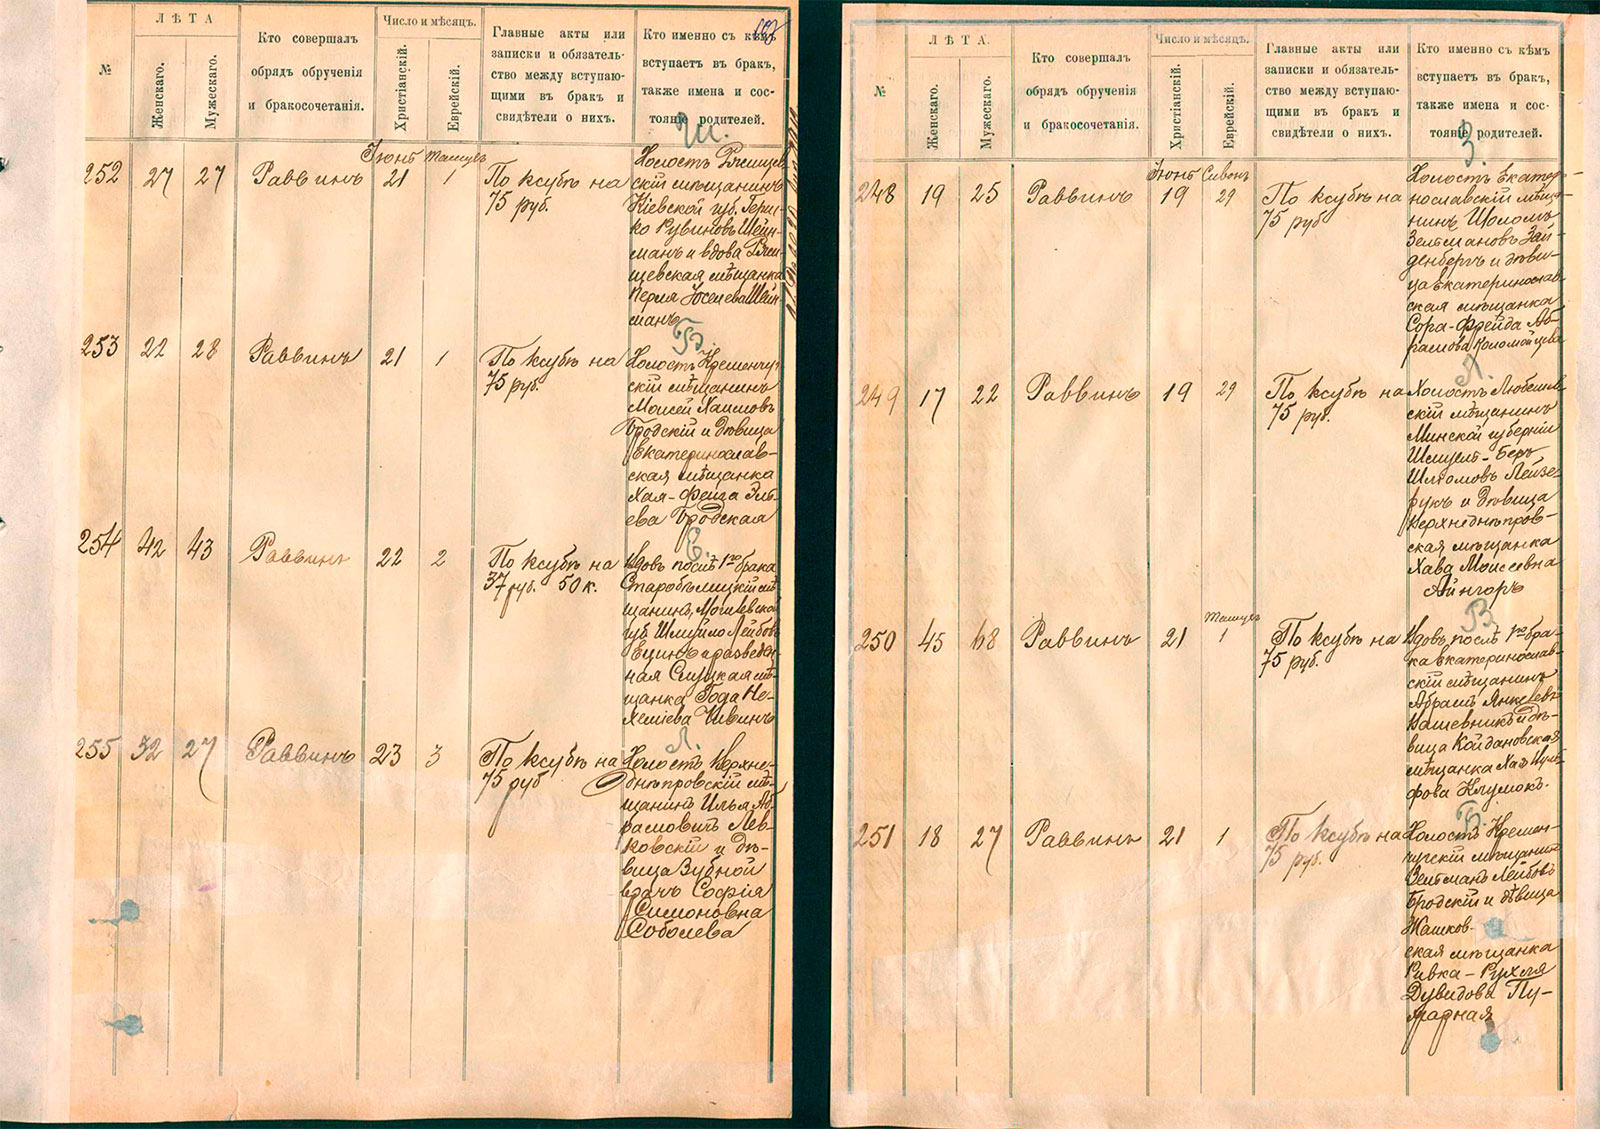 №
ЛѢТА
Женскаго.
Мужескаго.
Кто совершалъ
обрядъ обрученія
и бракосочетанія.
Число и мѣсяцъ.
Христіанскій.
Еврейскій.
Главные акты или
записки и обязатель-
ство между вступаю-
щими въ бракъ и
свидѣтели о нихъ.
Кто именно съ кѣмъ
вступаетъ въ бракъ,
также имена и сос-
тояніе родителей.
Ш.
Іюнь Тамузъ
252 27 27 Раввинъ 21 1 По ксубѣ на
75 руб.
Холостъ Ржищев
скій мѣщанинъ
Кіевской губ. Герш-
ко Рувиновъ Шейн-
манъ и вдова Ржи-
щевская мѣщанка
Перля Іоселева Шейн
манъ
Б.
253 22 28 Раввинъ 21 1 По ксубѣ на
75 руб.
Холостъ Кременчуг
скій мѣщанинъ
Моисей Хаимовъ
Бродскій и дѣвица
Екатеринослав-
ская мѣщанка
Хая-Фейга Эль-
ева Бродская
Е.
254 42 43 Раввинъ 22 2 По ксубѣ на
37 руб. 50 к.
Вдовъ послѣ 1го брака
Старобыхицкій мѣ
щанинъ, Могилевской
губ. Шмуйло Лейбовъ
Ецинъ и разведен-
ная Слуцкая мѣ-
щанка Года Не-
хеміева
Л.
255 32 27 Раввинъ 23 3 По ксубѣ на
75 руб
Холостъ Верхне-
днѣпровскій мѣ-
щанинъ Илья Аб-
рамовичъ Лев-
ковскій и дѣ-
вица Зубной
врачъ Софія
Симоновна
Соболева
№
ЛѢТА.
Женскаго.
Мужескаго.
Кто совершалъ
обрядъ обрученія
и бракосочетанія.
Число и мѣсяцъ.
Христіанскій.
Еврейскій.
Главные акты или
записки и обязатель-
ство между вступаю-
щими въ бракъ и
свидѣтели о нихъ.
Кто именно съ кѣмъ
вступаетъ въ бракъ,
также имена и сос-
тояніе родителей.
З.
Іюнь Сивонъ
248 19 25 Раввинъ 19 29 По ксубѣ на
75 руб
Холостъ Екатери-
нославскій мѣща-
нинъ Шоломъ
Зельмановъ Зай-
денбергъ и дѣви-
ца Екатеринослав-
ская мѣщанка
Сора-Фрейда Аб-
рамова Коломойцева
Л.
249 17 22 Раввинъ 19 29 По ксубѣ на
75 руб.
Холостъ
скій мѣщанинъ
Минской губерніи
Шмуелъ-Беръ
Шлиомовъ Лейзе-
рукъ и дѣвица
Верхнеднѣпров-
ская мѣщанка
Хава Моисеевна
Айнгоръ
В.
Тамузъ
250 45 68 Раввинъ 21 1 По ксубѣ на
75 руб.
Вдовъ послѣ 1го бра-
ка Екатеринослав-
скій мѣщанинъ
Абрамъ Янкелевъ
Вашевникъ и дѣ-
вица Койдановская
мѣщанка Хая
фова Клумокъ.
Б.
251 18 27 Раввинъ 21 1 По ксубѣ на
75 руб.
Холостъ Кремен-
чугскій мѣщанинъ
Зельманъ Лейбовъ
Бродскій и дѣвица
Жашков-
ская мѣщанка
Ривка-Рухля
Дувидова По-
жарная